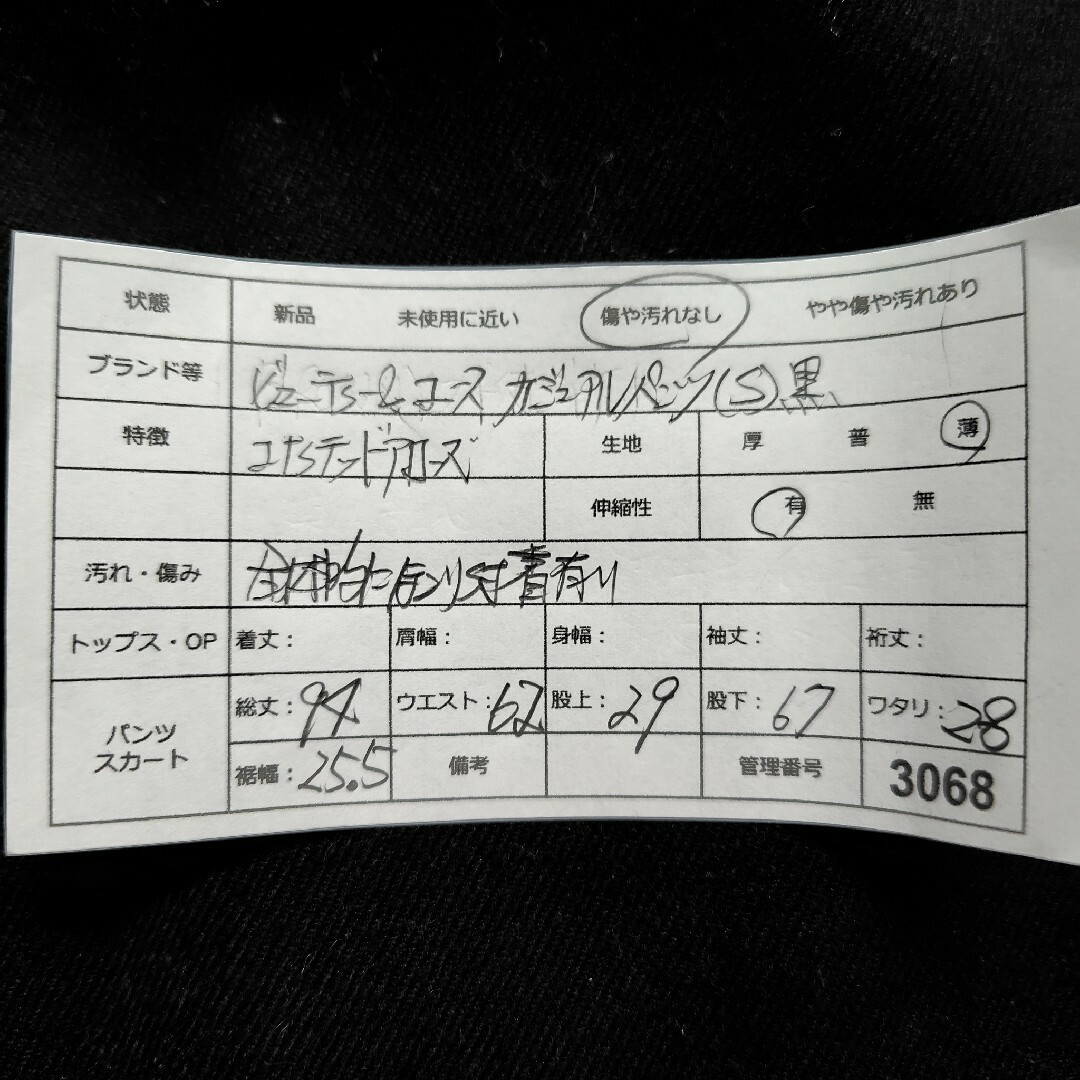 状態 新品 未使用に近い 傷や汚れなし やや傷や汚れあり
ブランド等 ビューティー&ユース カジュアルパンツ(S)黒
特徴 ユナイテッドアローズ 生地 厚 普 薄
伸縮性 有 無
汚れ・傷み 全体的に 付着有り
トップス・OP 着丈: 肩幅: 身幅: 袖丈: 裄丈:
パンツ スカート 総丈:94 ウエスト:62 股上:29 股下:67 ワタリ:28
裾幅:25.5 備考 管理番号 3068